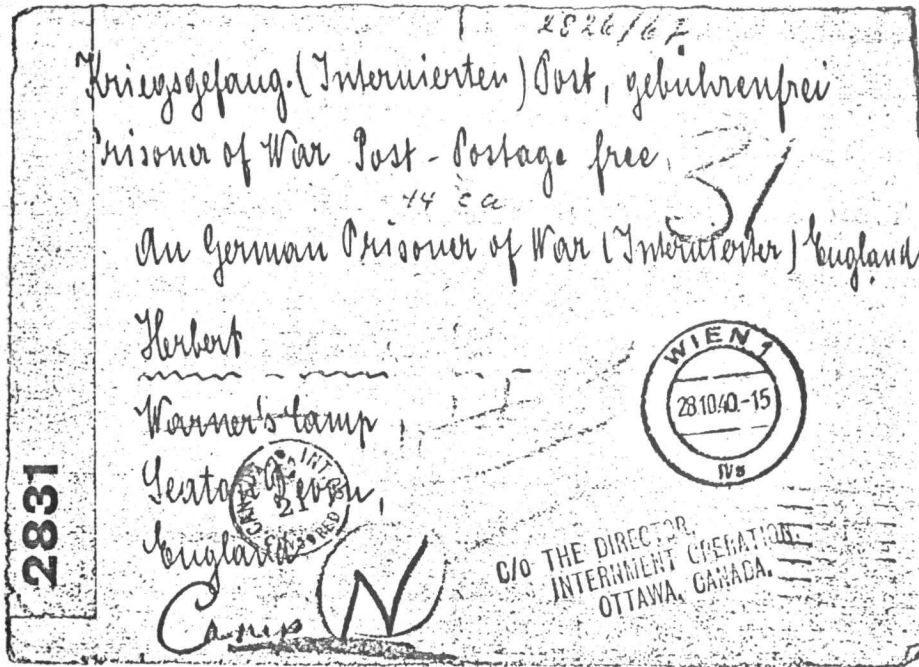 2826/62
Kriegsgefang. (Internierten) Post, gebührenfrei
Prisoner of War Post - Postage free
31
44 ca
An German Prisoner of War (Internierter) England
Herbert
Warner's Camp,
Seaton Devon,
England
Camp N
WIEN 1
28.10.40.-15
IVa
C/O THE DIRECTOR
INTERNMENT OPERATION
OTTAWA, CANADA.
2831